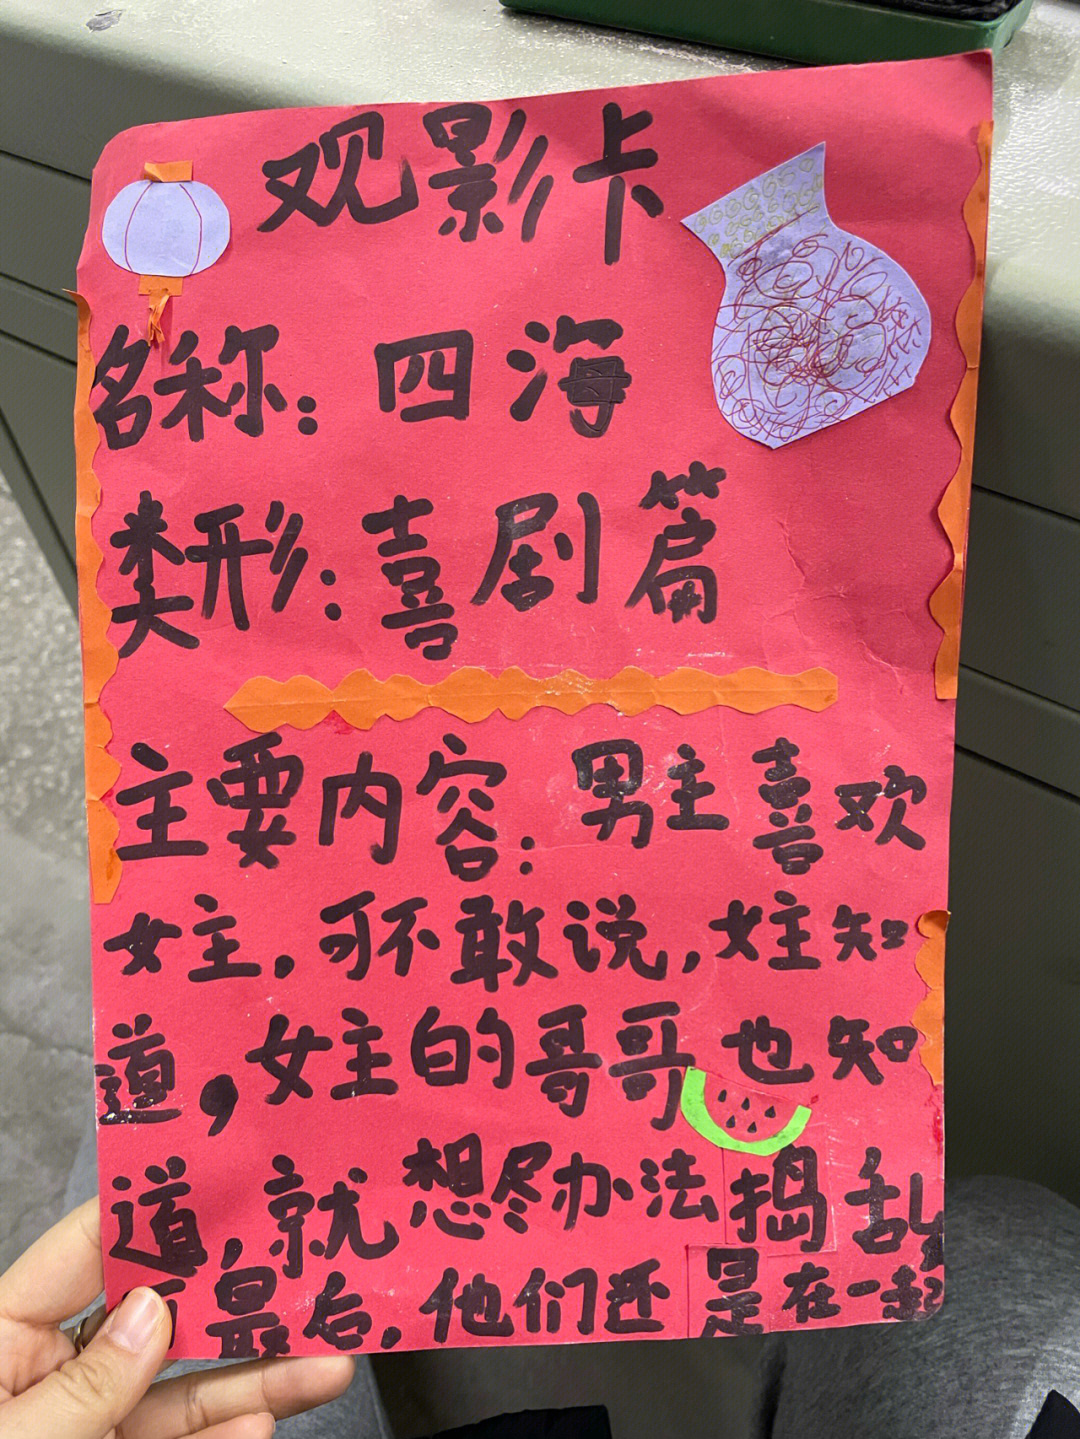 观影卡
名称：四海
类形：喜剧篇
主要内容：男主喜欢
女主，可不敢说，女主知
道，女主的哥哥也知
道，就想尽办法捣乱
最后，他们还是在一起